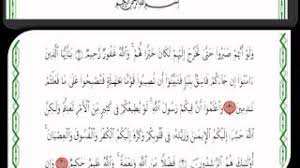 بِسْمِ اللَّهِ الرَّحْمَٰنِ الرَّحِيمِ
وَلَوْ أَنَّهُمْ صَبَرُوا۟ حَتَّىٰ تَخْرُجَ إِلَيْهِمْ لَكَانَ خَيْرًا لَّهُمْ وَٱللَّهُ غَفُورٌ رَّحِيمٌ يَـٰٓأَيُّهَا ٱلَّذِينَ
ءَامَنُوٓا۟ إِن جَآءَكُمْ فَاسِقٌۢ بِنَبَإٍ فَتَبَيَّنُوٓا۟ أَن تُصِيبُوا۟ قَوْمًۢا بِجَهَـٰلَةٍ فَتُصْبِحُوا۟ عَلَىٰ مَا فَعَلْتُمْ
نَـٰدِمِينَ وَٱعْلَمُوٓا۟ أَنَّ فِيكُمْ رَسُولَ ٱللَّهِ لَوْ يُطِيعُكُمْ فِى كَثِيرٍ مِّنَ ٱلْأَمْرِ لَعَنِتُّمْ وَلَـٰكِنَّ
ٱللَّهَ حَبَّبَ إِلَيْكُمُ ٱلْإِيمَـٰنَ وَزَيَّنَهُۥ فِى قُلُوبِكُمْ وَكَرَّهَ إِلَيْكُمُ ٱلْكُفْرَ وَٱلْفُسُوقَ وَٱلْعِصْيَانَ
فَضْلًا مِّنَ ٱللَّهِ وَنِعْمَةً وَٱللَّهُ عَلِيمٌ حَكِيمٌ